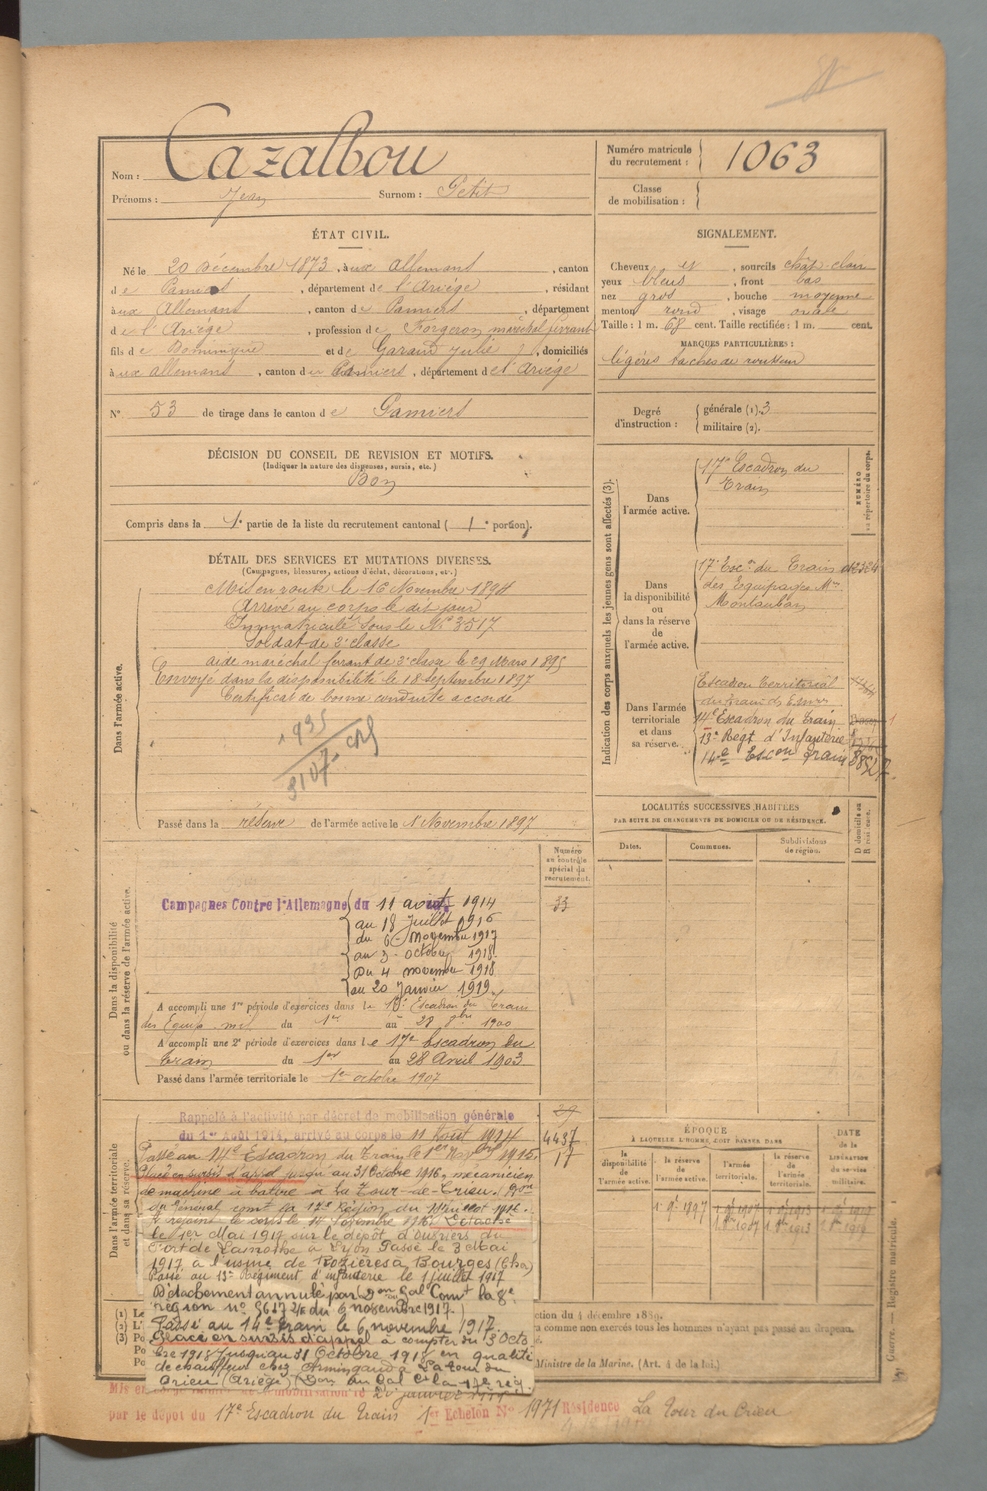 Nom : Cazalbou
Prénoms : Jean Surnom : Petit
Numéro matricule du recrutement : 1063
Classe de mobilisation :
ÉTAT CIVIL.
Né le 20 Décembre 1873, à ux Allemans, canton
de Pamiers, département de l'Ariége, résidant
à ux Allemans, canton de Pamiers, département
de l'Ariége, profession de Forgeron maréchal ferrant
fils de Dominique et de Garaud Julie, domiciliés
à ux allemans, canton de Pamiers, département de l'Ariége
N° 53 de tirage dans le canton de Pamiers
SIGNALEMENT.
Cheveux et, sourcils chât. clair
yeux bleus, front bas
nez gros, bouche moyenne
menton rond, visage ovale
Taille : 1 m. 68 cent. Taille rectifiée : 1 m. cent.
MARQUES PARTICULIÈRES :
légères taches de rousseur
Degré d'instruction : générale (1). 3
militaire (2).
DÉCISION DU CONSEIL DE REVISION ET MOTIFS.
(Indiquer la nature des dispenses, sursis, etc.)
Bon
Compris dans la 1e partie de la liste du recrutement cantonal (1e portion).
DÉTAIL DES SERVICES ET MUTATIONS DIVERSES.
(Campagnes, blessures, actions d'éclat, décorations, etc.)
Dans l'armée active.
Mis en route le 16 Novembre 1894
Arrivé au corps le dit jour
Immatriculé sous le N° 3517
Soldat de 2e classe
aide maréchal ferrant de 2e classe le 29 Mars 1895
Envoyé dans la disponibilité le 18 Septembre 1897
Certificat de bonne conduite accordé
Passé dans la réserve de l'armée active le 1 Novembre 1897
Indication des corps auxquels les jeunes gens sont affectés (3).
NUMÉRO au répertoire du corps.
Dans l'armée active.
17e Escadron du
Train
Dans la disponibilité ou dans la réserve de l'armée active.
17e Esc.on du Train
des Equipages Mres
Montauban
Dans l'armée territoriale et dans sa réserve.
Escadron territorial
du train des Equi
14e Escadron du Train
13e Régt d'Infanterie
14e Escon Train
LOCALITÉS SUCCESSIVES HABITÉES
PAR SUITE DE CHANGEMENTS DE DOMICILE OU DE RÉSIDENCE.
Dates. Communes. Subdivisions de région.
Dans la disponibilité ou dans la réserve de l'armée active.
Numéro au contrôle spécial du recrutement.
33
Campagnes Contre l'Allemagne du 11 août 1914
au 18 Juillet 1916
du 6 Novembre 1917
au 3 octobre 1918
Du 4 novembre 1918
au 20 Janvier 1919
A accompli une 1re période d'exercices dans le 18e Escadron du train
des Equip. mil. du 1er au 28 8bre 1900
A accompli une 2e période d'exercices dans le 17e Escadron du
train du 1er au 28 Avril 1903
Passé dans l'armée territoriale le 1er octobre 1907
Dans l'armée territoriale et dans sa réserve.
Rappelé à l'activité par décret de mobilisation générale
du 1er Août 1914, arrivé au corps le 11 Août 1914
4437
17
Passé au 14e Escadron du Train le 1er 1915
Placé en sursis d'appel jusqu'au 31 Octobre 1916, mécanicien
de machine à battre à La Tour-de-Crieu.
du Général comt la 17e Région du Juillet 1916
A rejoint le corps le 1er Novembre 1916. Détaché
le 1er Mai 1917 sur le dépôt d'ouvriers du
Fort de Lamothe à Lyon Passé le 3 Mai
1917 à l'usine de Rozières à Bourges (Cher)
Passé au 13e Régiment d'infanterie le 1 Juillet 1917
Détachement annulé par Don Gal Comt la 8e
région n° 8617 du 6 novembre 1917.
Passé au 14e train le 6 novembre 1917.
Placé en sursis d'appel à compter du 3 Octo
bre 1918 jusqu'au 31 Octobre 1918 en qualité
de chauffeur chez Armingaud à La tour du
Crieu (Ariège) (Don du Gal Ct la 17e rég.
ÉPOQUE
À LAQUELLE L'HOMME DOIT PASSER DANS
la disponibilité de l'armée active. la réserve de l'armée active. l'armée territoriale. la réserve de l'armée territoriale.
DATE de la LIBÉRATION du service militaire.
ction du 4 décembre 1889.
comme non exercés tous les hommes n'ayant pas passé au drapeau.
Ministre de la Marine. (Art. 4 de la loi.)
par le dépôt du 17e Escadron du Train 1er Echelon N° 1971 Résidence La Tour du Crieu
Guerre. — Registre matricule.